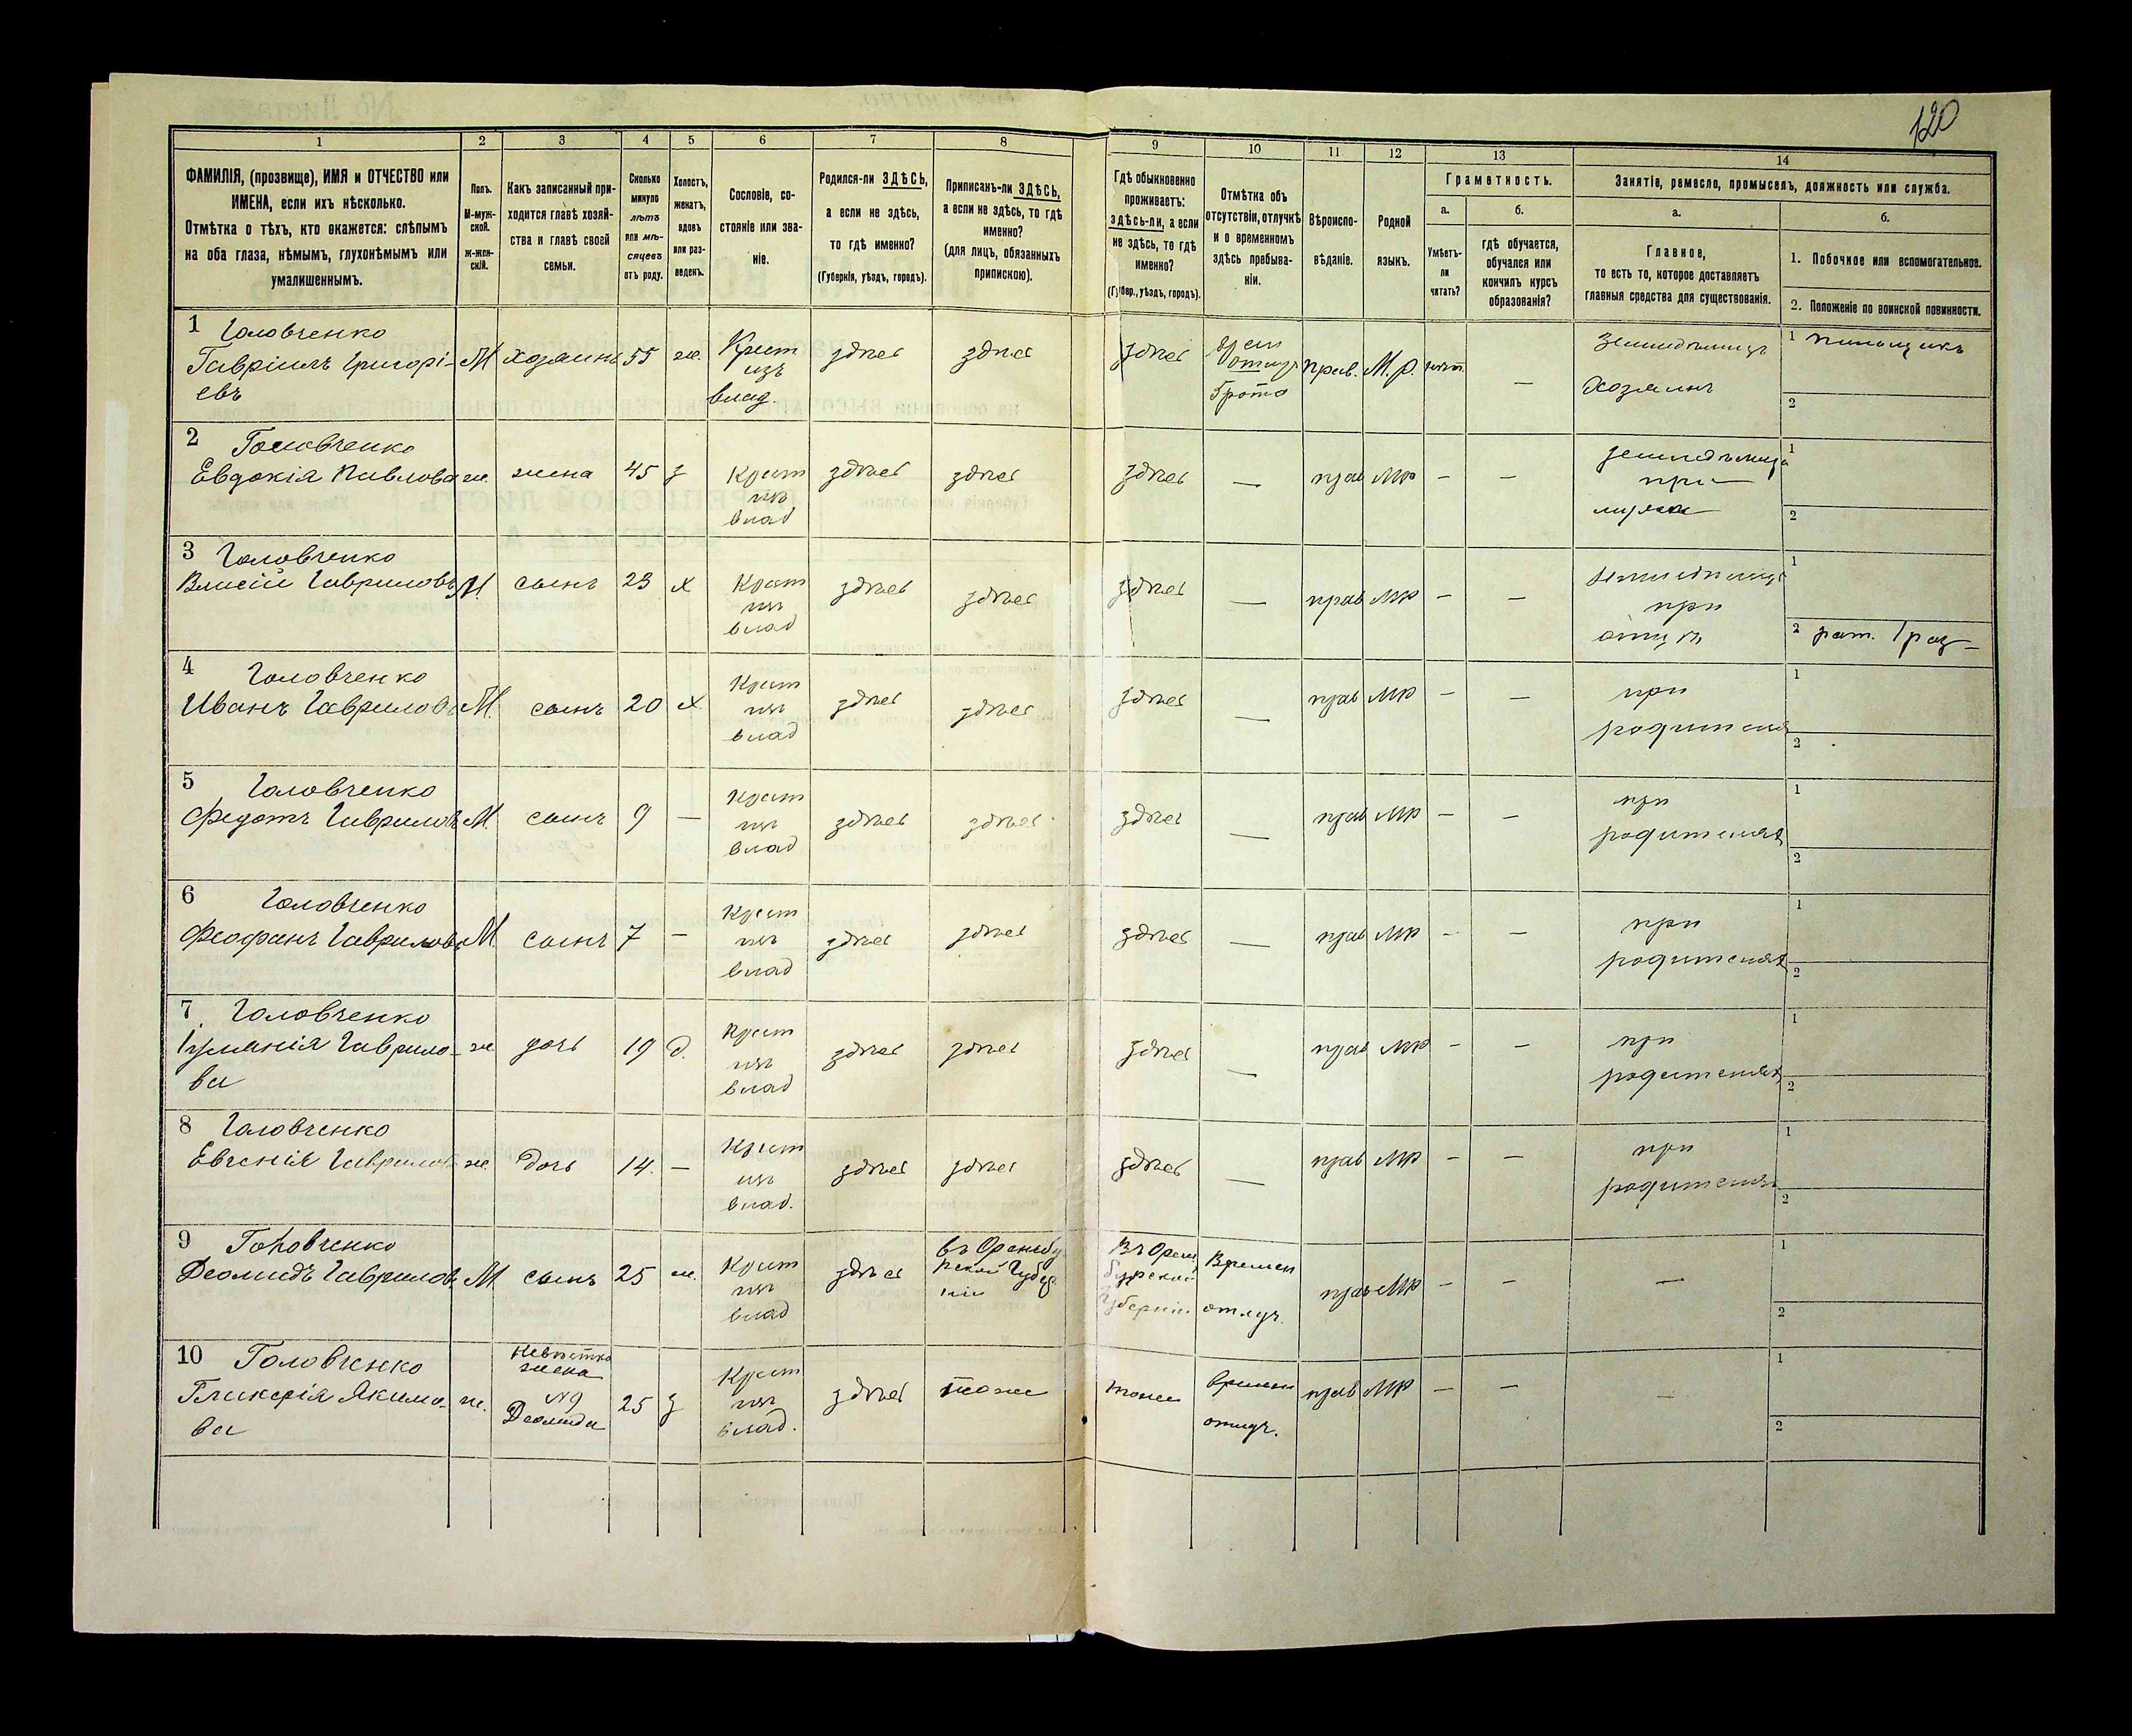 120
1 2 3 4 5 6 7 8 9 10 11 12 13 14
ФАМИЛІЯ, (прозвище), ИМЯ и ОТЧЕСТВО или
ИМЕНА, если ихъ нѣсколько.
Отмѣтка о тѣхъ, кто окажется: слѣпымъ
на оба глаза, нѣмымъ, глухонѣмымъ или
умалишеннымъ.
Полъ.
М-муж-
ской.
Ж-жен-
скій.
Какъ записанный при-
ходится главѣ хозяй-
ства и главѣ своей
семьи.
Сколько
минуло
лѣтъ
или мѣ-
сяцевъ
отъ роду.
Холостъ,
женатъ,
вдовъ
или раз-
веденъ.
Сословіе, со-
стояніе или зва-
ніе.
Родился-ли ЗДѢСЬ,
а если не здѣсь,
то гдѣ именно?
(Губернія, уѣздъ, городъ).
Приписанъ-ли ЗДѢСЬ,
а если не здѣсь, то гдѣ
именно?
(для лицъ, обязанныхъ
припискою).
Гдѣ обыкновенно
проживаетъ:
здѣсь-ли, а если
не здѣсь, то гдѣ
именно?
(Губер., уѣздъ, городъ).
Отмѣтка объ
отсутствіи, отлучкѣ
и о временномъ
здѣсь пребыва-
ніи.
Вѣроиспо-
вѣданіе.
Родной
языкъ.
Грамотность.
а.
Умѣетъ-
ли
читать?
б.
гдѣ обучается,
обучался или
кончилъ курсъ
образованія?
Занятіе, ремесло, промыселъ, должность или служба.
а.
Главное,
то есть то, которое доставляетъ
главныя средства для существованія.
б.
1. Побочное или вспомогательное.
2. Положеніе по воинской повинности.
1 Головченко
Гавріилъ Григорі-
евъ
М хозяинъ 55 ж.
Крест
изъ
влад.
здѣсь здѣсь здѣсь
прав. М.р. нѣтъ. —
Земледѣлецъ
Хозяинъ
1 пильщикъ
2
2 Головченко
Евдокія Павлова ж. жена 45 з
Крест
изъ
влад
здѣсь здѣсь здѣсь — прав мр — —
земледѣлица
при
мужѣ
1
2
3 Головченко
Власій Гавриловъ М. сынъ 23 х
Крест
изъ
влад
здѣсь здѣсь здѣсь — прав мр — —
земледѣлецъ
при
отцѣ
1
2 рат. 1 раз-
4 Головченко
Иванъ Гавриловъ М. сынъ 20 х.
Крест
изъ
влад
здѣсь здѣсь здѣсь — прав мр — —
при
родителяхъ
1
2
5 Головченко
Федотъ Гавриловъ М. сынъ 9 —
Крест
изъ
влад
здѣсь здѣсь здѣсь — прав мр — —
при
родителяхъ
1
2
6 Головченко
Феофанъ Гавриловъ М. сынъ 7 —
Крест
изъ
влад
здѣсь здѣсь здѣсь — прав мр — —
при
родителяхъ
1
2
7 Головченко
Гаврило-
ва
ж дочь 19 д.
Крест
изъ
влад
здѣсь здѣсь здѣсь — прав мр — —
при
родителяхъ
1
2
8 Головченко
Евгенія Гаврилова ж. дочь 14. —
Крест
изъ
влад.
здѣсь здѣсь здѣсь — прав мр — —
при
родителяхъ
1
2
9 Головченко
Деомидъ Гавриловъ М сынъ 25 ж.
Крест
изъ
влад
здѣсь
въ Оренбу
рской Губер
ніи
Въ Орен
бурской
губерніи
Времен
отлуч.
прав мр — — —
1
2
10 Головченко
Гликерія Якимо-
ва
ж.
Невѣстка
жена
№9
Деомида
25 з
Крест
изъ
влад.
здѣсь тоже тоже
времен
отлуч.
прав мр — — —
1
2